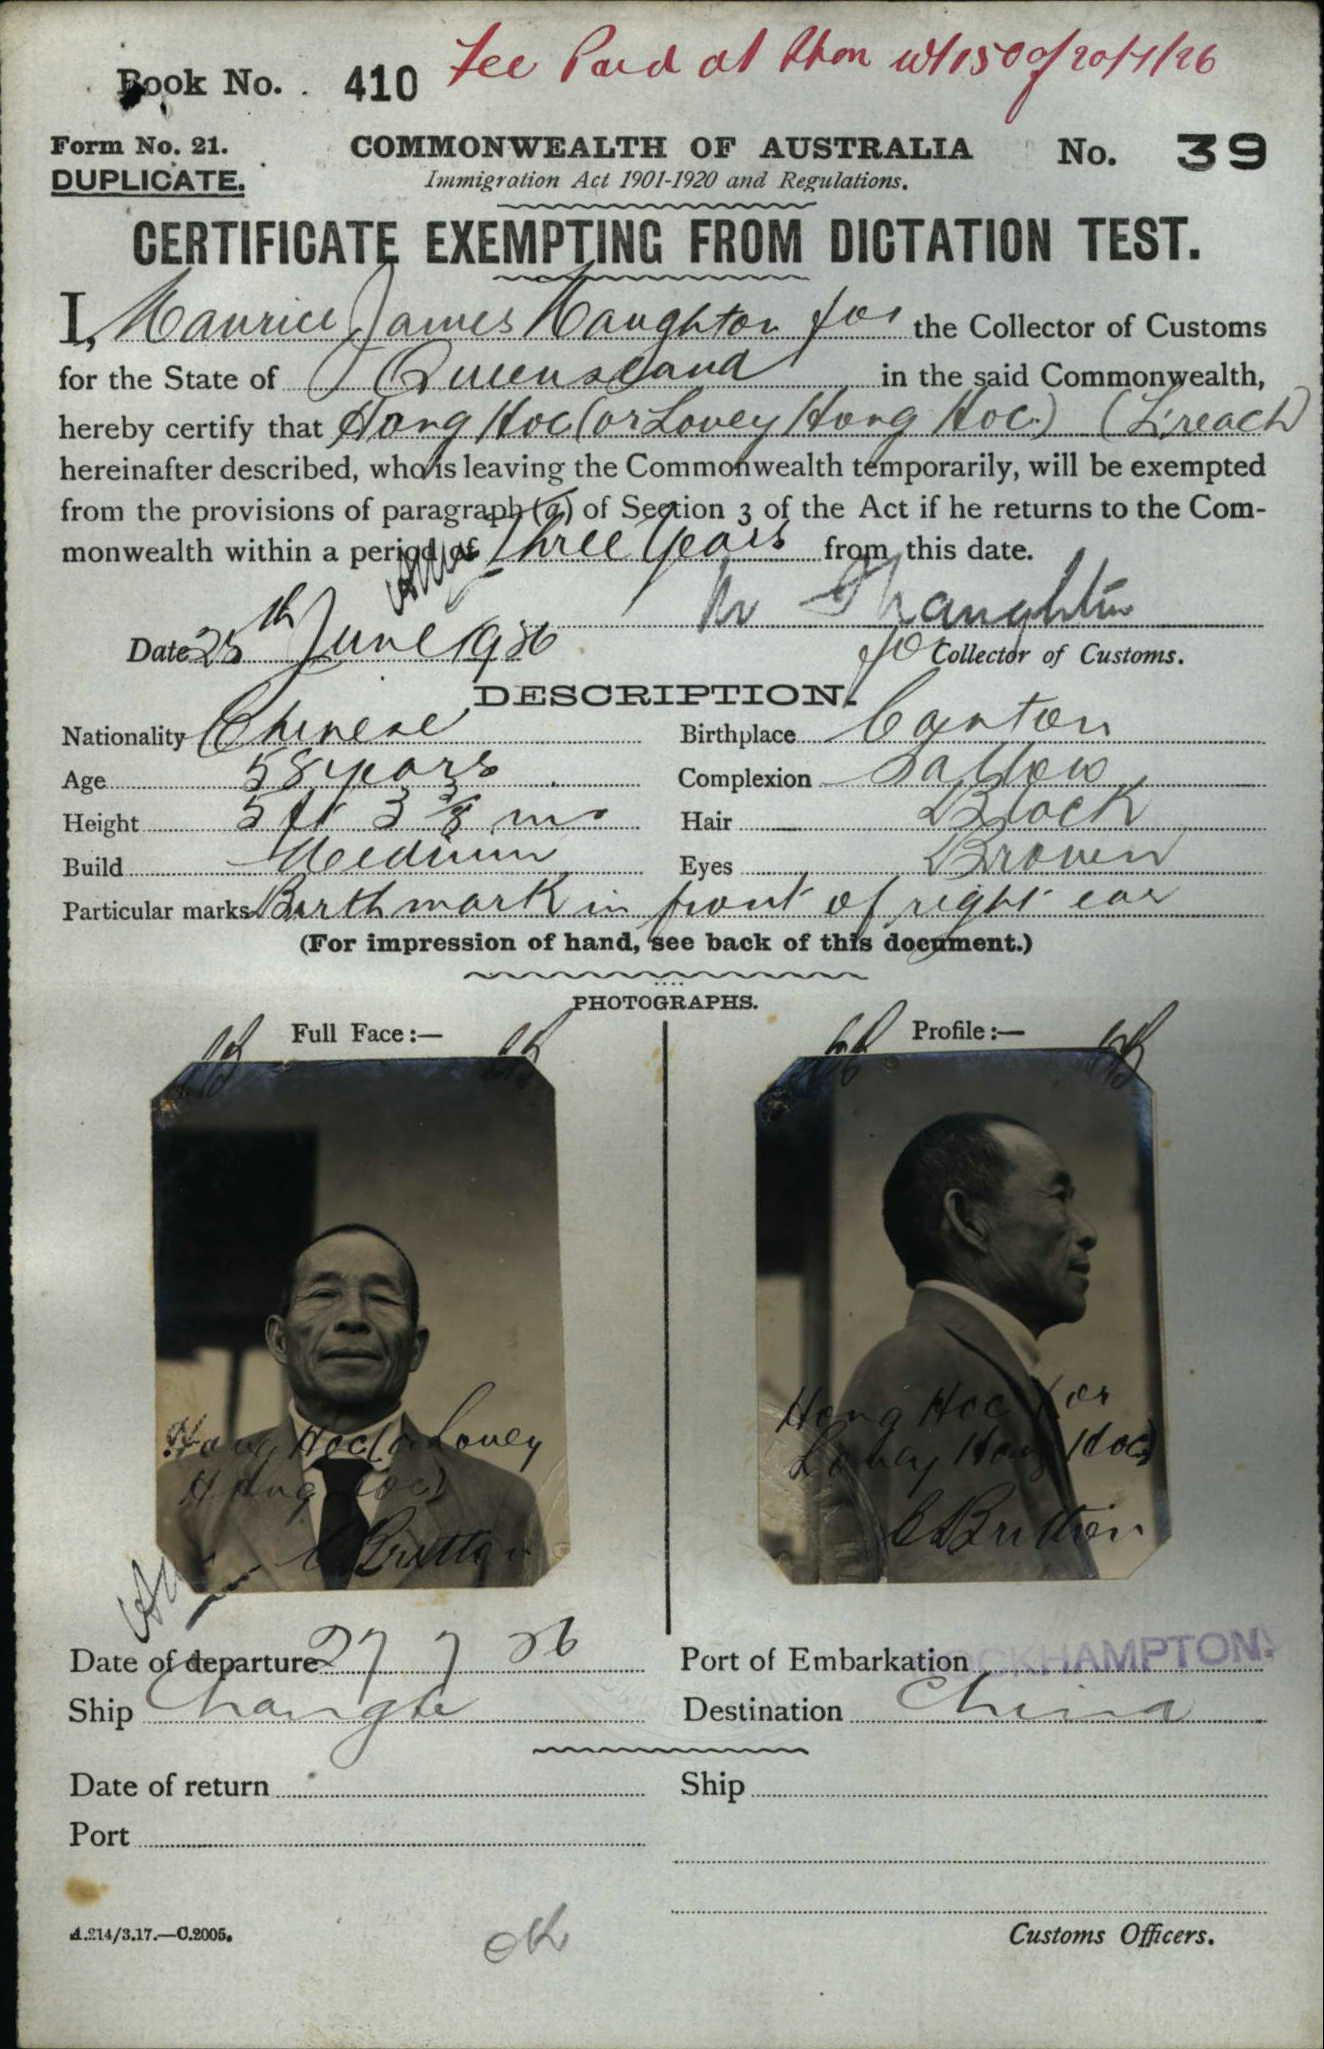 Book No. 410 Fee Paid at Rton w/150 of 20/7/26
Form No. 21. COMMONWEALTH OF AUSTRALIA No. 39
DUPLICATE. Immigration Act 1901-1920 and Regulations.
CERTIFICATE EXEMPTING FROM DICTATION TEST.
I, Maurice James Naughton for the Collector of Customs
for the State of Queensland in the said Commonwealth,
hereby certify that Hong Hoc (or Lovey Hong Hoc) (L'reach)
hereinafter described, who is leaving the Commonwealth temporarily, will be exempted
from the provisions of paragraph (a) of Section 3 of the Act if he returns to the Com-
monwealth within a period of Three Years from this date.
Naughton
Date 25th June 1926 for Collector of Customs.
DESCRIPTION.
Nationality Chinese Birthplace Canton
Age 58 years Complexion Sallow
Height 5 ft 3 3/8 ins Hair Black
Build Medium Eyes Brown
Particular marks Birthmark in front of right ear
(For impression of hand, see back of this document.)
PHOTOGRAPHS.
Full Face :— Profile :—
Hong Hoc (or Lovey
Hong Hoc)
C Britton
Hong Hoc (or
Lovey Hong Hoc)
C Britton
Date of departure 27 7 26 Port of Embarkation ROCKHAMPTON.
Ship Changte Destination China
Date of return Ship
Port
A.214/3.17.—C.2005. Customs Officers.